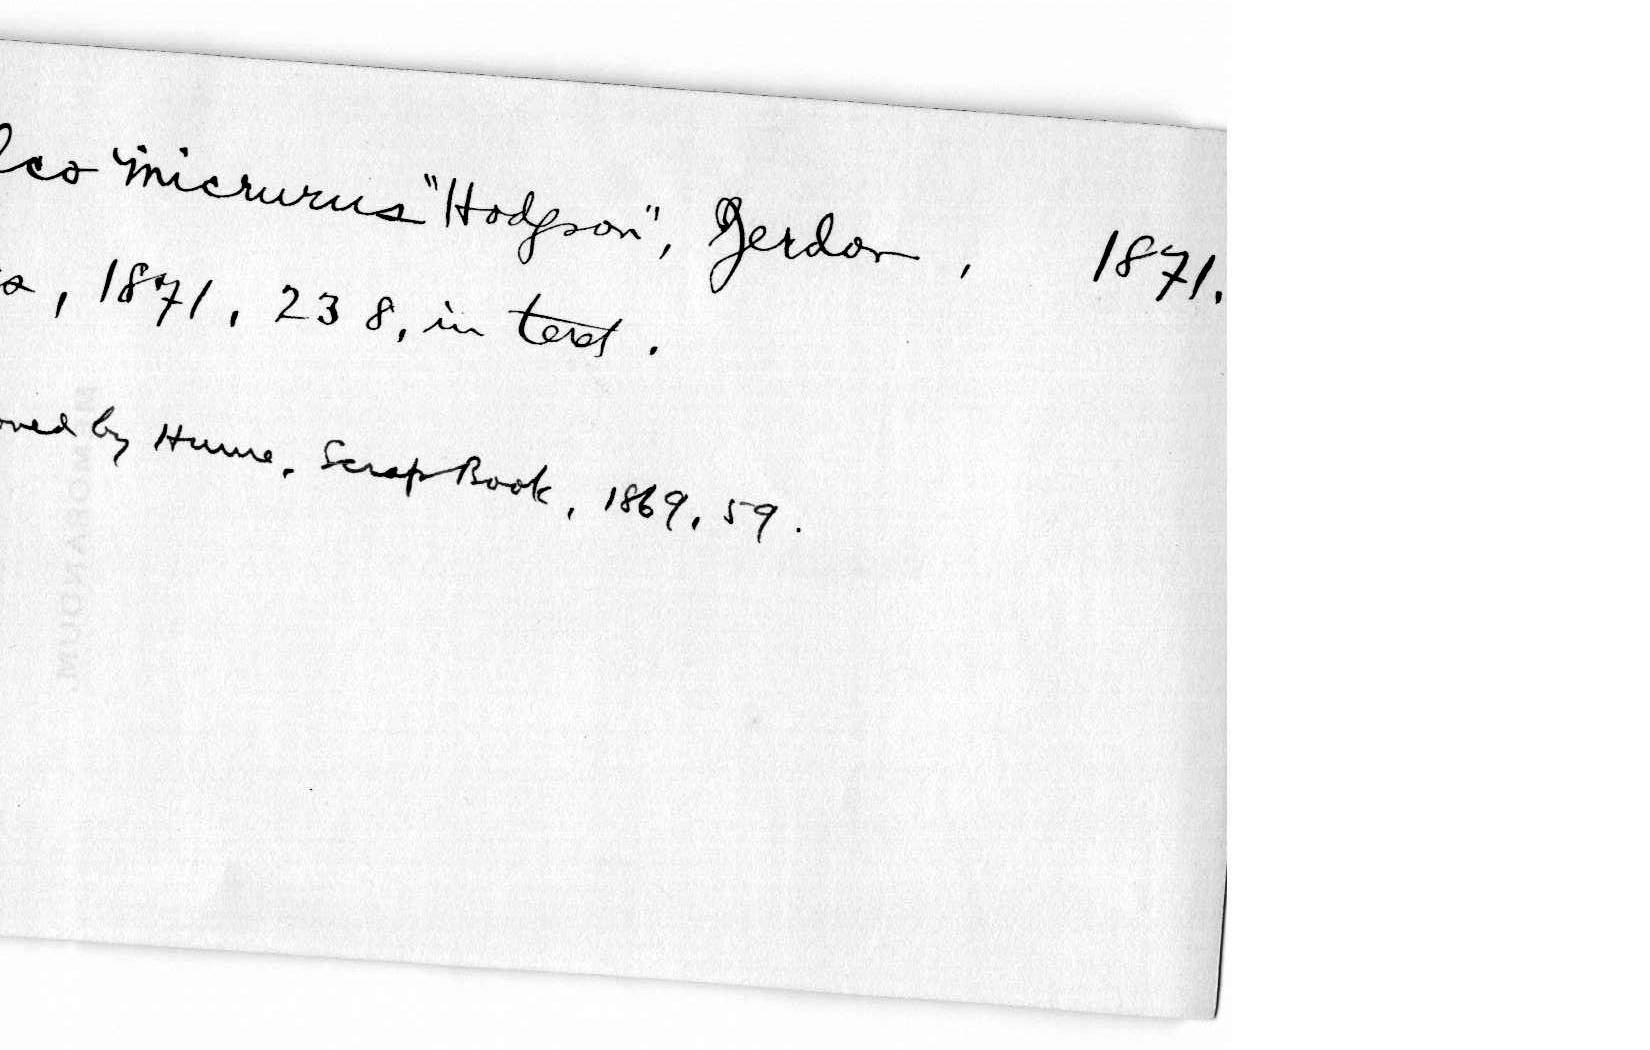 lco "micrurus "Hodgson", Jerdon, 1871.
, 1871, 238, in text.
oned by Hume, Scrap Book, 1869, 59.
MEMORANDUM.